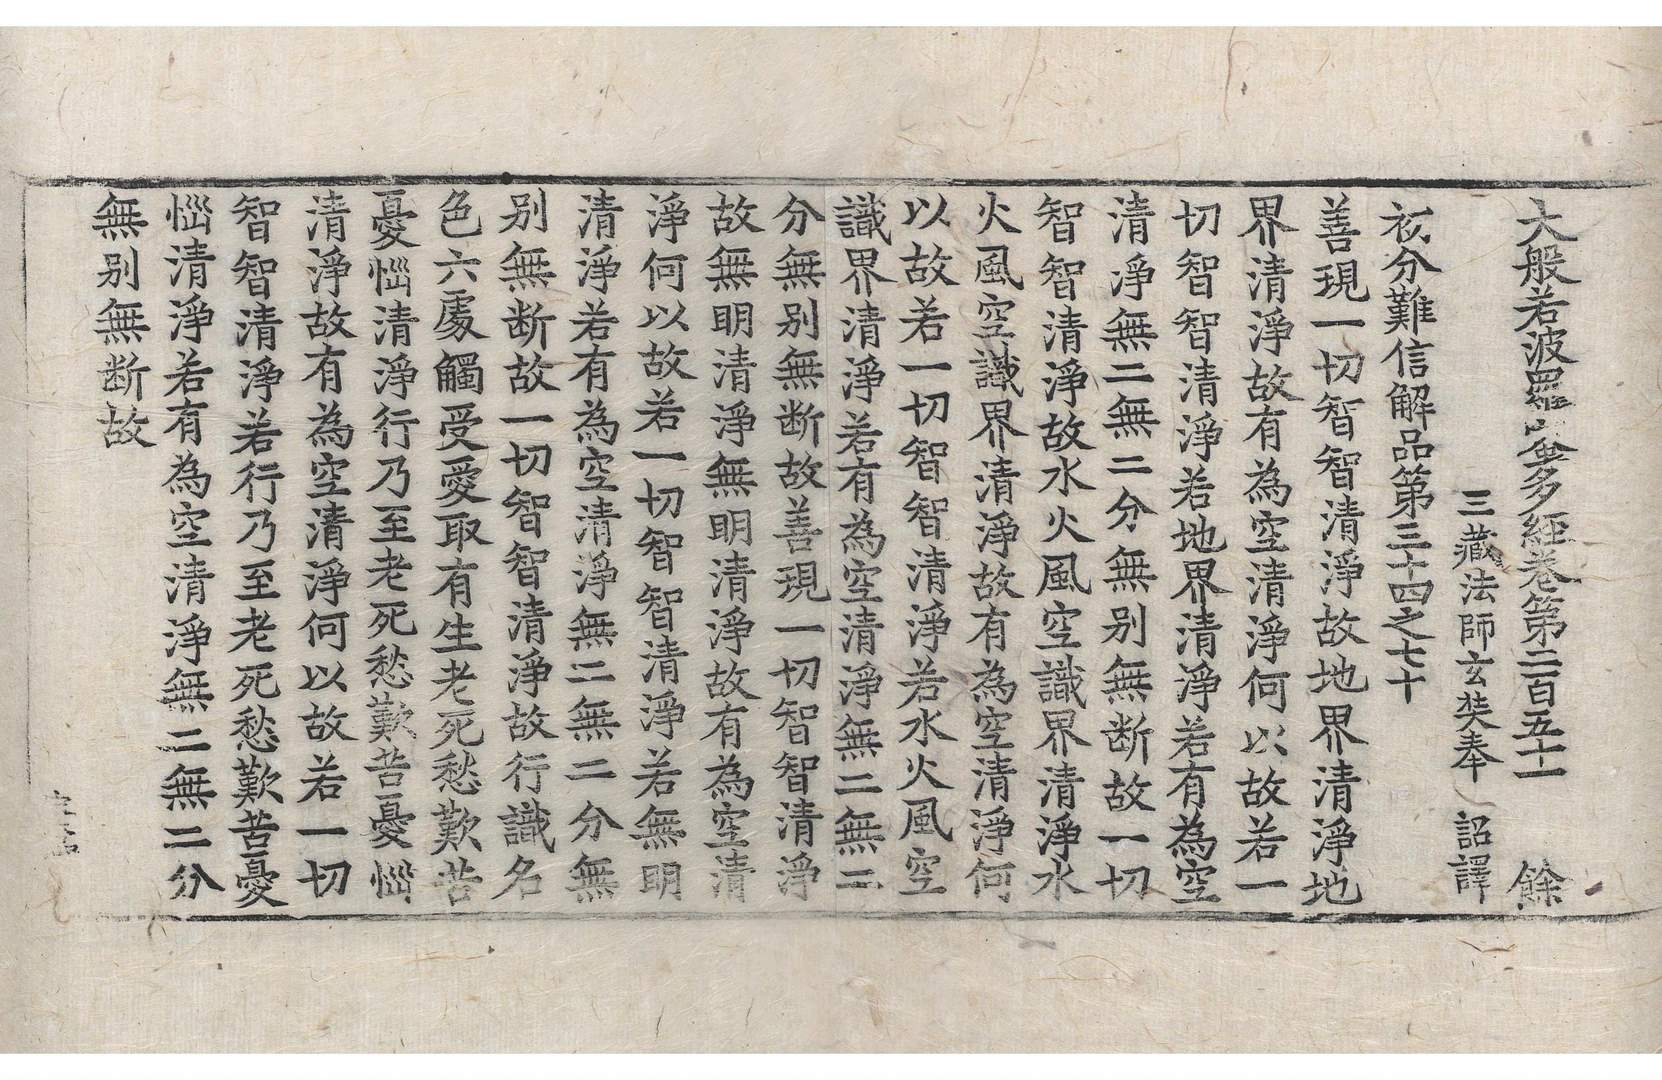 大般若波羅蜜多經卷第二百五十一 餘
三藏法師玄奘奉 詔譯
初分難信解品第三十四之七十
善現一切智智清淨故地界清淨地
界清淨故有為空清淨何以故若一
切智智清淨若地界清淨若有為空
清淨無二無二分無別無斷故一切
智智清淨故水火風空識界清淨水
火風空識界清淨故有為空清淨何
以故若一切智智清淨若水火風空
識界清淨若有為空清淨無二無二
分無別無斷故善現一切智智清淨
故無明清淨無明清淨故有為空清
淨何以故若一切智智清淨若無明
清淨若有為空清淨無二無二分無
別無斷故一切智智清淨故行識名
色六處觸受愛取有生老死愁歎苦
憂惱清淨行乃至老死愁歎苦憂惱
清淨故有為空清淨何以故若一切
智智清淨若行乃至老死愁歎苦憂
惱清淨若有為空清淨無二無二分
無別無斷故